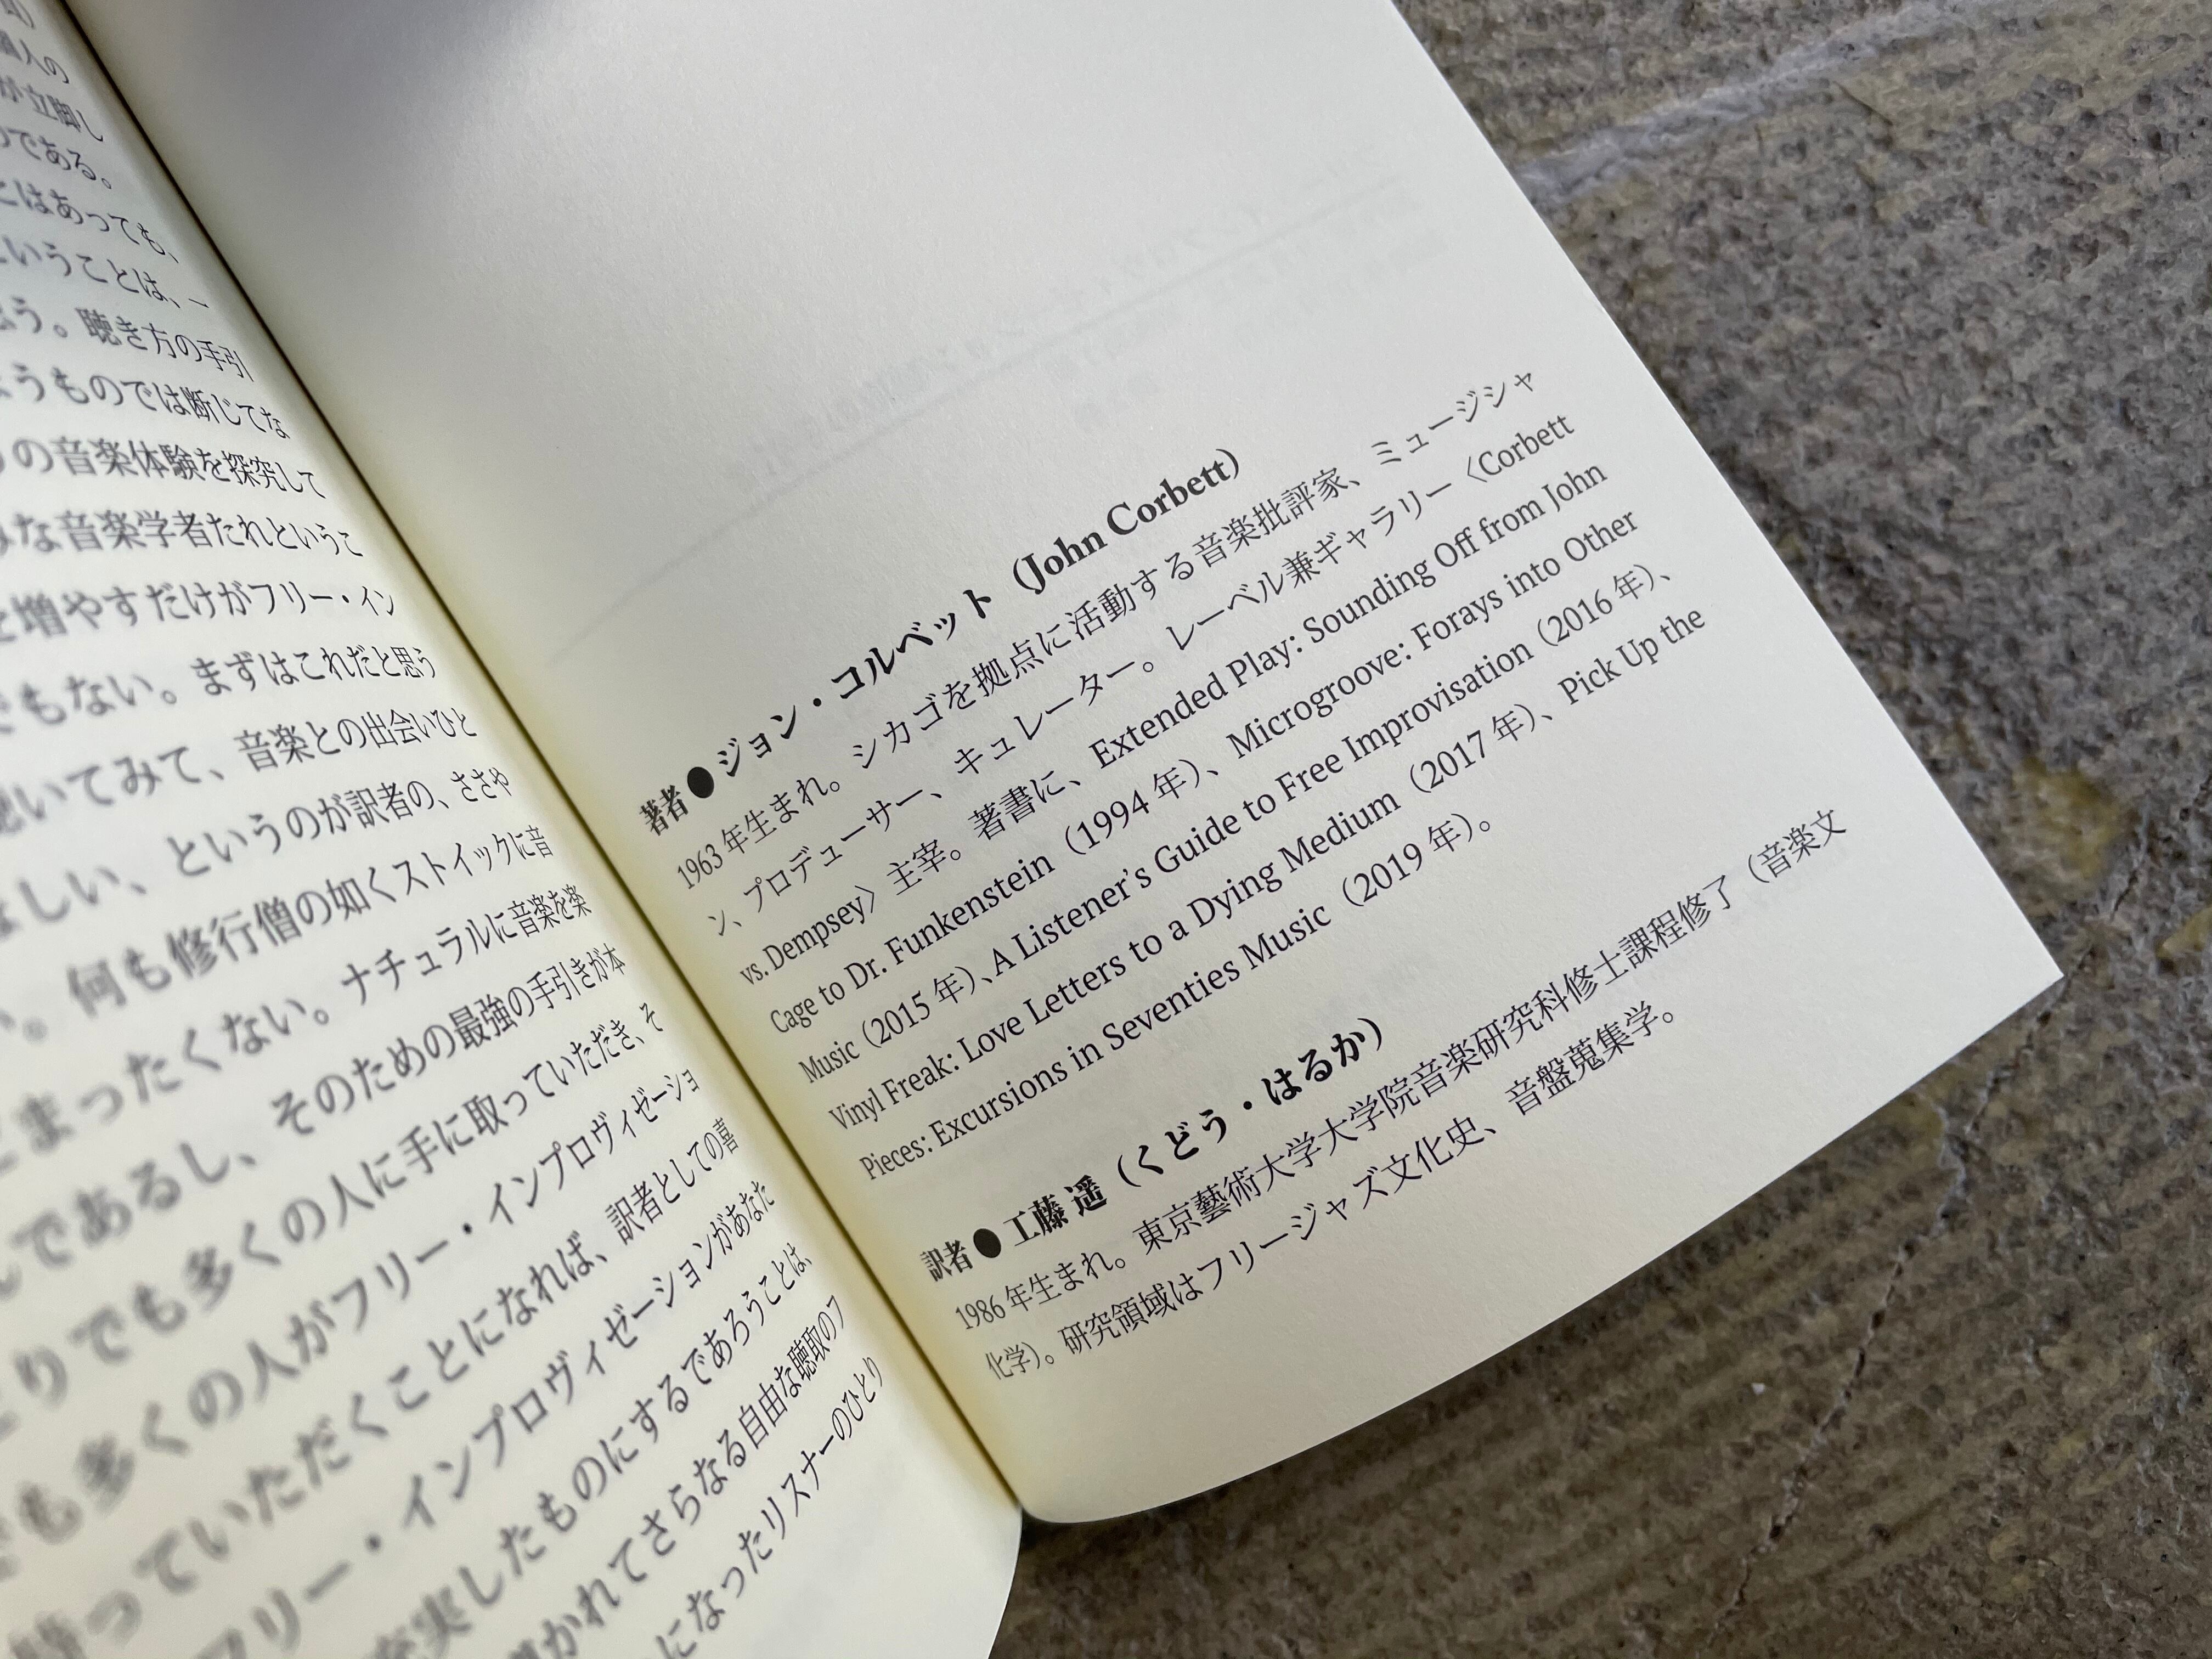 個人の
が立脚し
のである。
にはあっても、
ということは、一
思う。聴き方の手引
ようものでは断じてな
りの音楽体験を探究して
みな音楽学者たれというこ
と増やすだけがフリー・イン
でもない。まずはこれだと思う
聴いてみて、音楽との出会いひと
ほしい、というのが訳者の、ささや
い。何も修行僧の如くストイックに音
まったくない。ナチュラルに音楽を楽
であるし、そのための最強の手引きが本
とりでも多くの人に手に取っていただき、そ
でも多くの人がフリー・インプロヴィゼーショ
持っていただくことになれば、訳者としての喜
フリー・インプロヴィゼーションがあなた
充実したものにするであろうことは、
開かれてさらなる自由な聴取のフ
になったリスナーのひとり
著者●ジョン・コルベット（John Corbett）
1963年生まれ。シカゴを拠点に活動する音楽批評家、ミュージシャ
ン、プロデューサー、キュレーター。レーベル兼ギャラリー〈Corbett
vs. Dempsey〉主宰。著書に、Extended Play: Sounding Off from John
Cage to Dr. Funkenstein（1994年）、Microgroove: Forays into Other
Music（2015年）、A Listener's Guide to Free Improvisation（2016年）、
Vinyl Freak: Love Letters to a Dying Medium（2017年）、Pick Up the
Pieces: Excursions in Seventies Music（2019年）。
訳者●工藤 遥（くどう・はるか）
1986年生まれ。東京藝術大学大学院音楽研究科修士課程修了（音楽文
化学）。研究領域はフリージャズ文化史、音盤蒐集学。